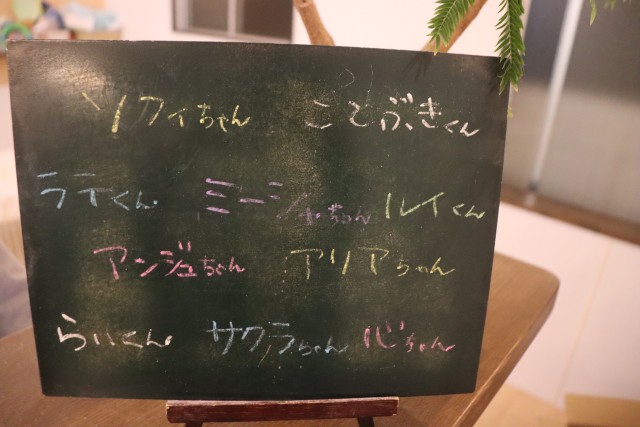 ソフィちゃん ことぶきくん
ラテくん ミーシャちゃん ルイくん
アンジュちゃん アリアちゃん
らいくん サクラちゃん 心ちゃん